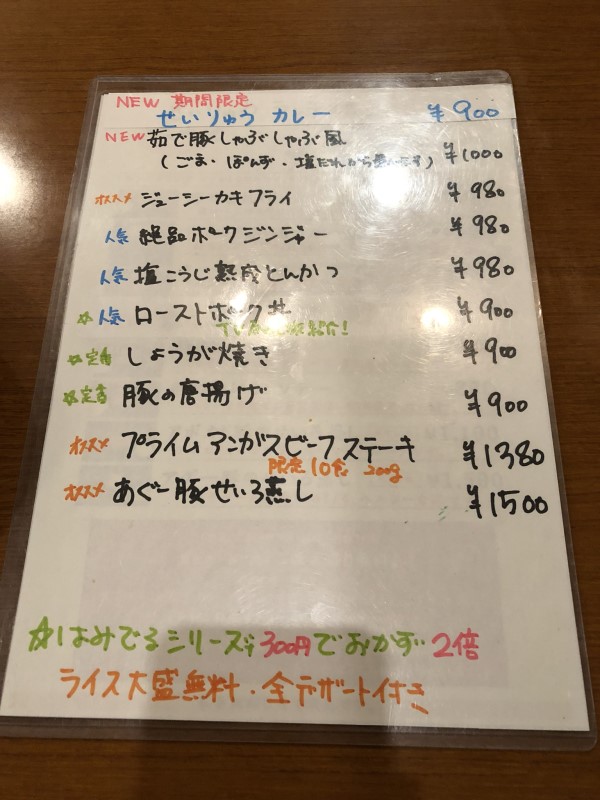 NEW 期間限定
せいりゅう カレー ¥900
NEW 茹で豚しゃぶしゃぶ風 ¥1000
(ごま・ぽんず・塩だれから選べます)
オススメ ジューシーカキフライ ¥980
人気 絶品ポークジンジャー ¥980
人気 塩こうじ熟成とんかつ ¥980
☆人気 ローストポーク丼 ¥900
紹介!
☆定番 しょうが焼き ¥900
☆定番 豚の唐揚げ ¥900
オススメ プライムアンガスビーフステーキ ¥1380
限定10食 200g
オススメ あぐー豚せいろ蒸し ¥1500
☆はみでるシリーズ+300円でおかず2倍
ライス大盛無料・全デザート付き